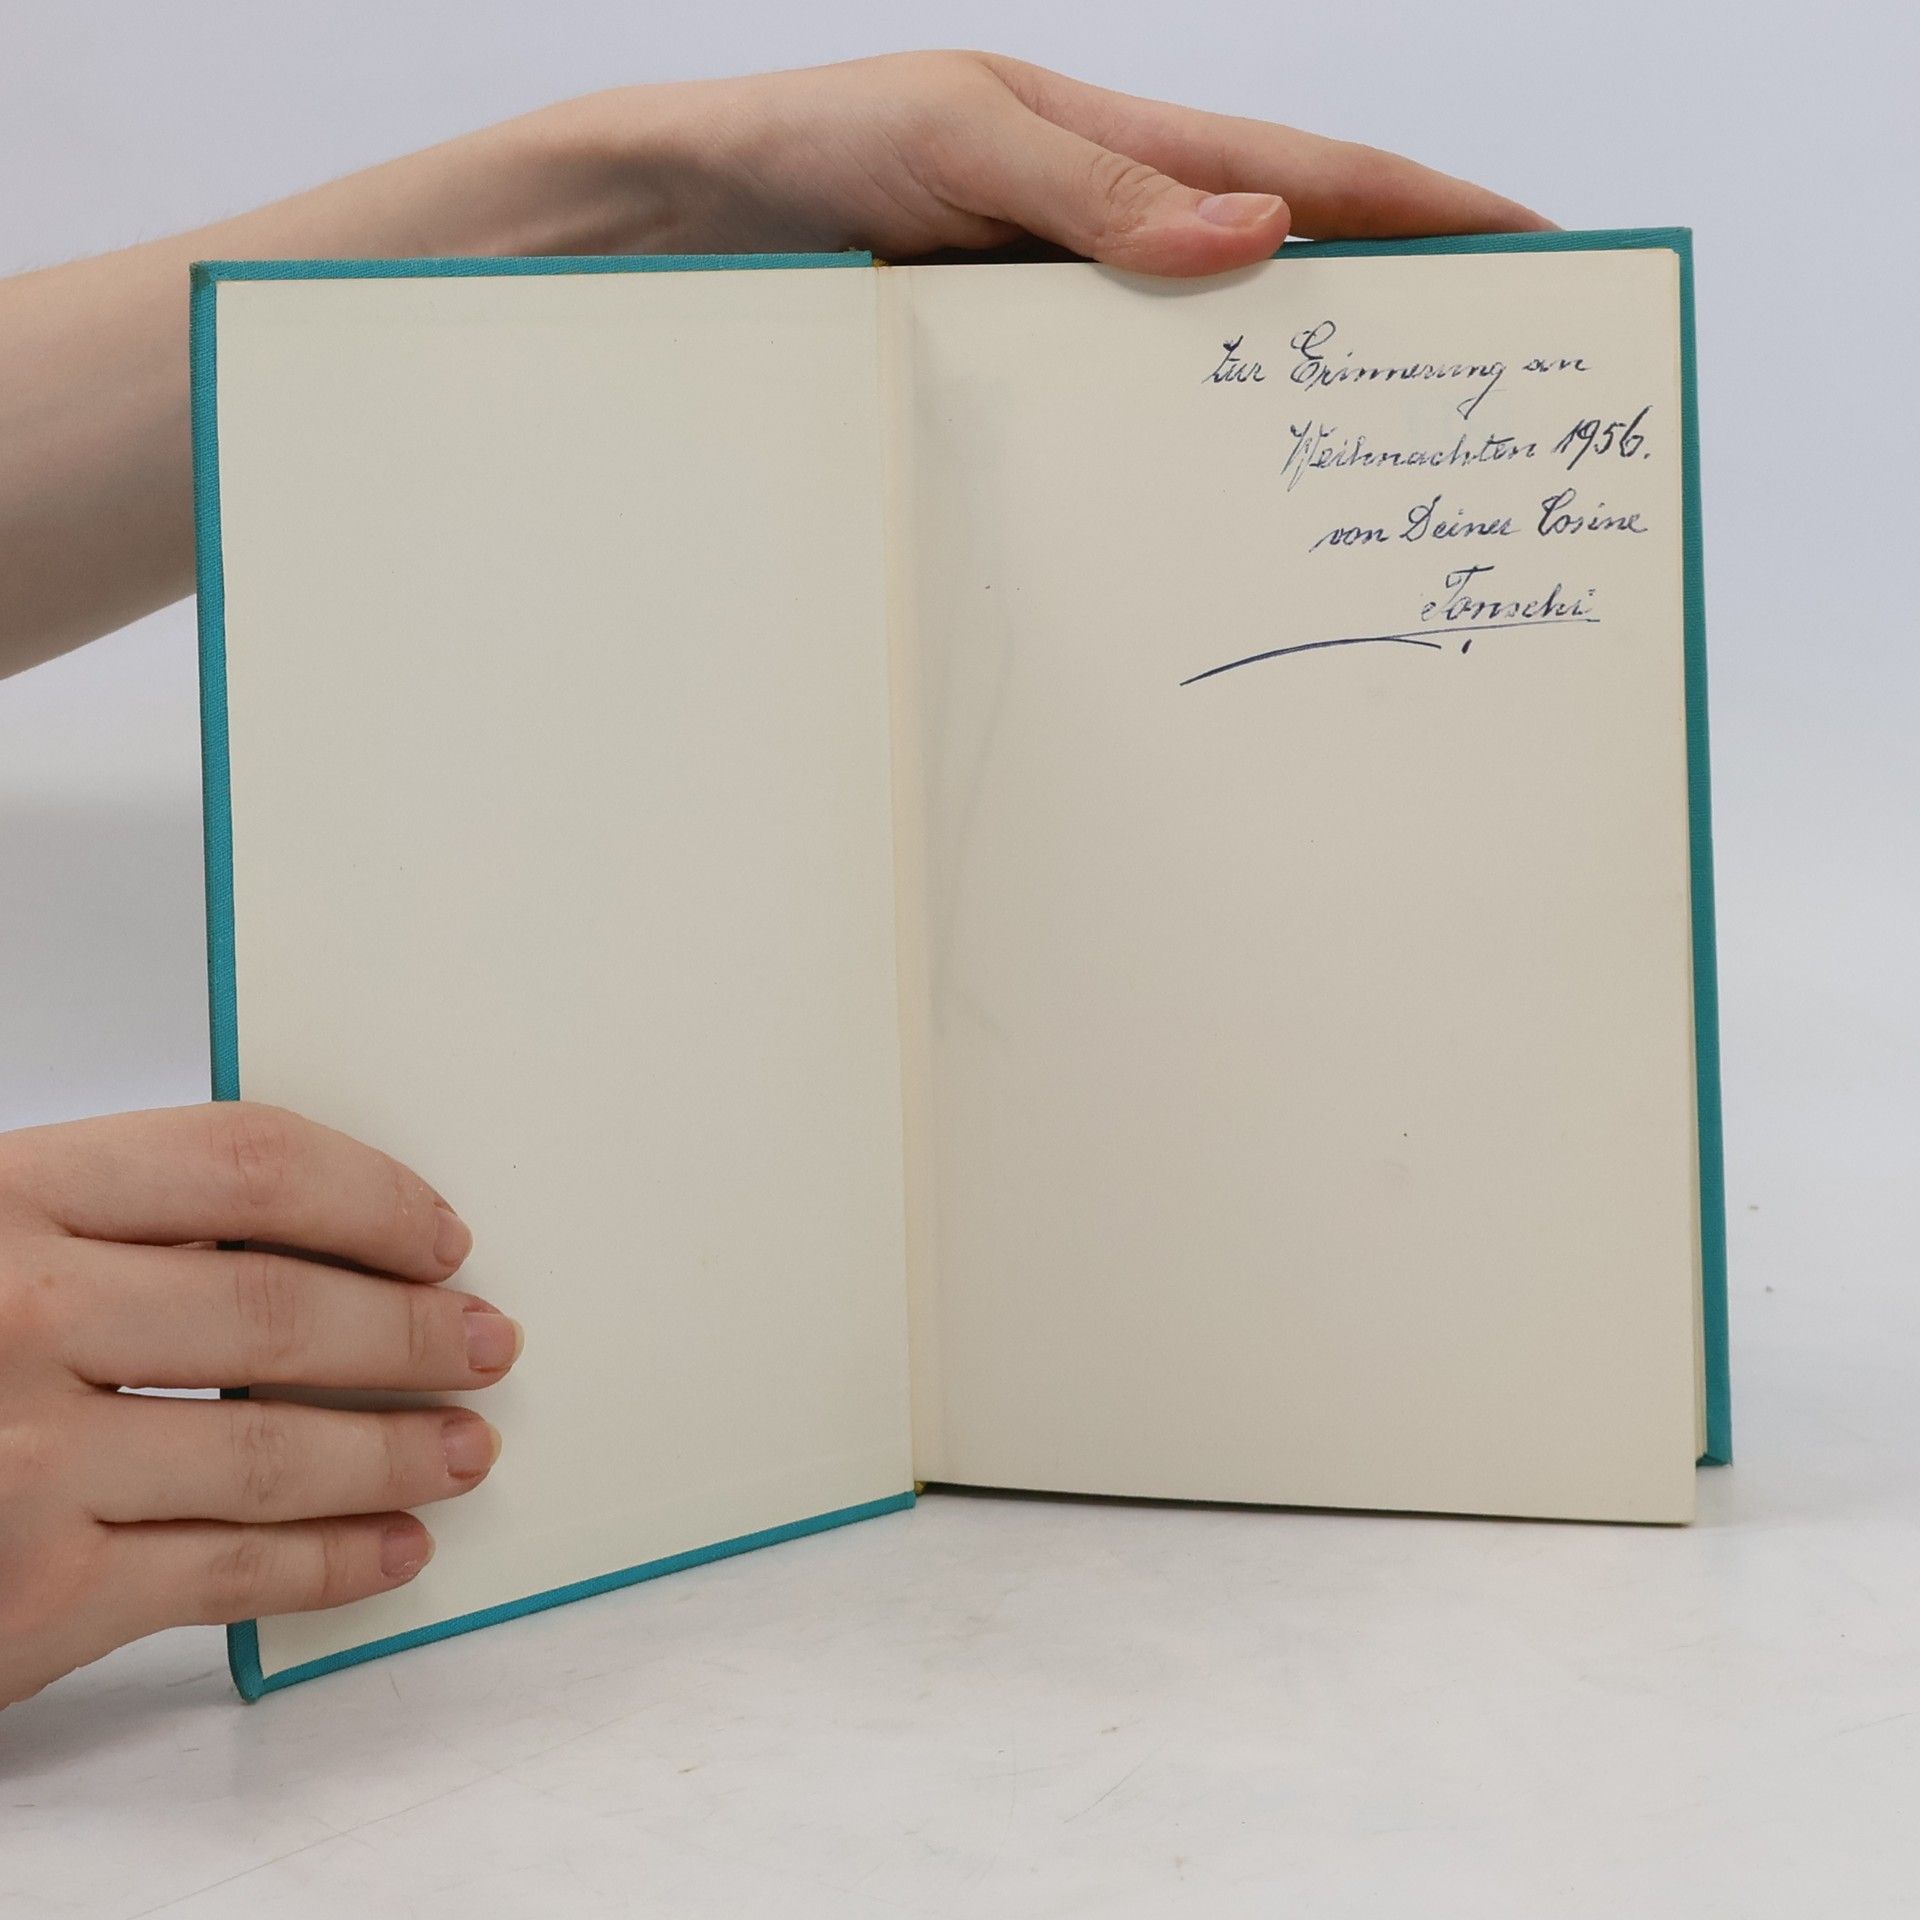 Zur Erinnerung an
Weihnachten 1956.
von Deiner Cosine
Tonschi